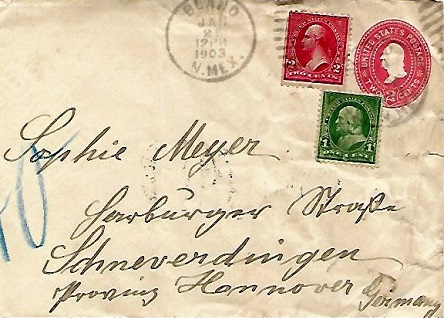 BLAND
JAN
2
12 M
1903
N. MEX.
2 2
TWO CENTS
UNITED STATES POSTAGE
2 2
TWO CENTS
1 1
ONE CENT
Sophie Meyer
Harburger Straße
Schneverdingen
Provinz Hannover
Germany